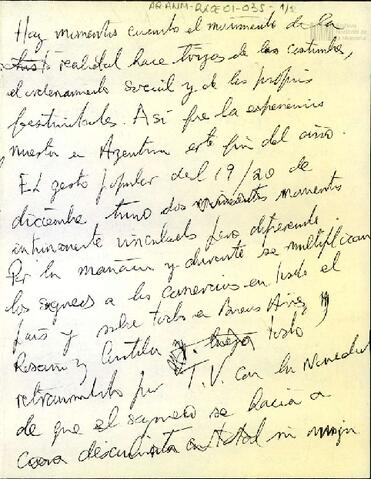 AR-ANM-RACE01-035 - 1/2
Hay momentos cuando el movimiento de la
realidad hace trizas de las costumbres,
el ordenamiento social y de las propias
festividades. Así fue la experiencia
nuestra en Argentina este fin del año.
El gesto popular del 19/20 de
diciembre tuvo dos momentos
intimamente vinculados pero diferentes.
Por la mañana y durante se multiplican
los saqueos a los comercios en todo el
país y sobre todo en Buenos Aires y
Rosario y todo
retransmitido por T.V. con la novedad
de que el saqueo se hacía a
cara descubierta en total sin ningún